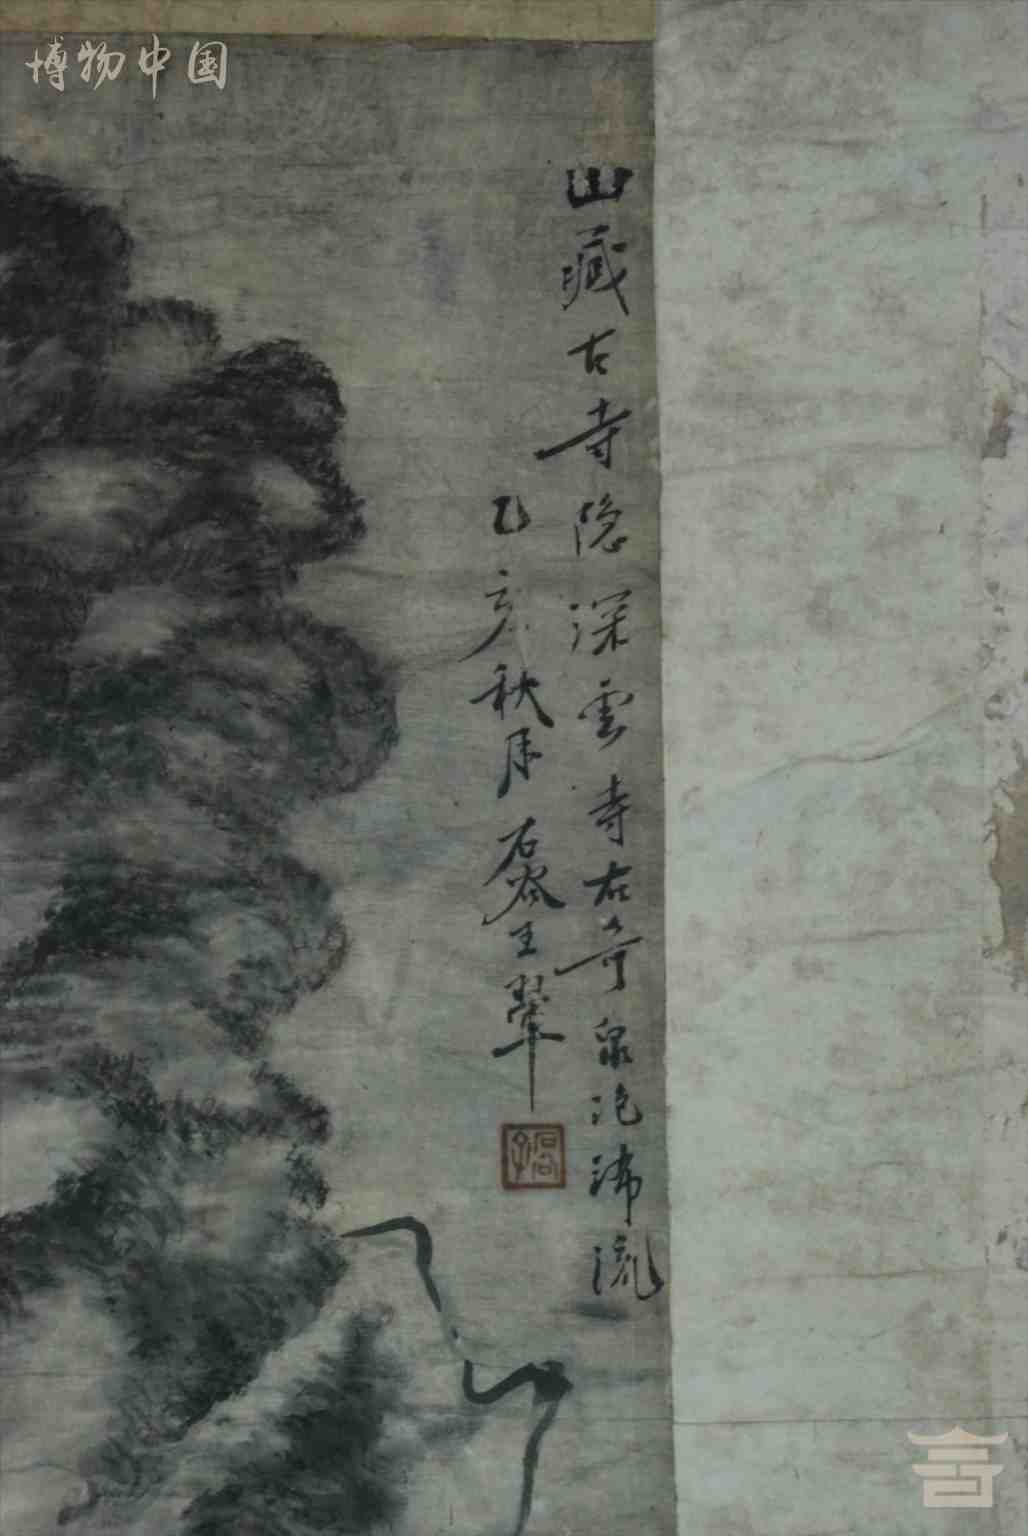 博物中国
山藏古寺隐深雲寺右奇泉沲沸流
乙亥秋月石谷王翬